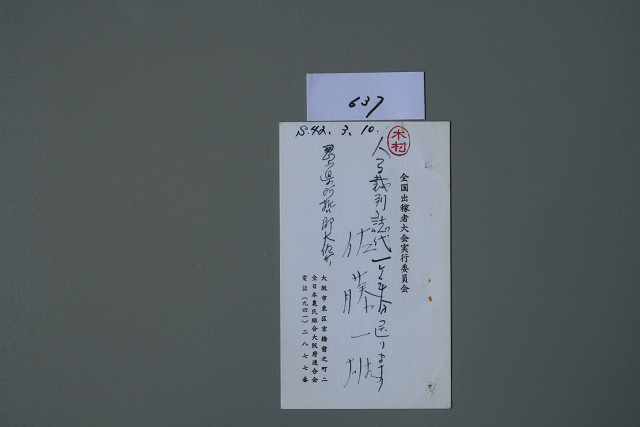 637
S.42. 3. 10.
木村
全国出稼者大会実行委員会
人 裁判 誌代一ヶ年分送ります
佐藤一雄
岡山県 郡大佐町
大阪市東区京橋前之町二
全日本農民組合大阪府連合会
電話(九四一)二八七七番